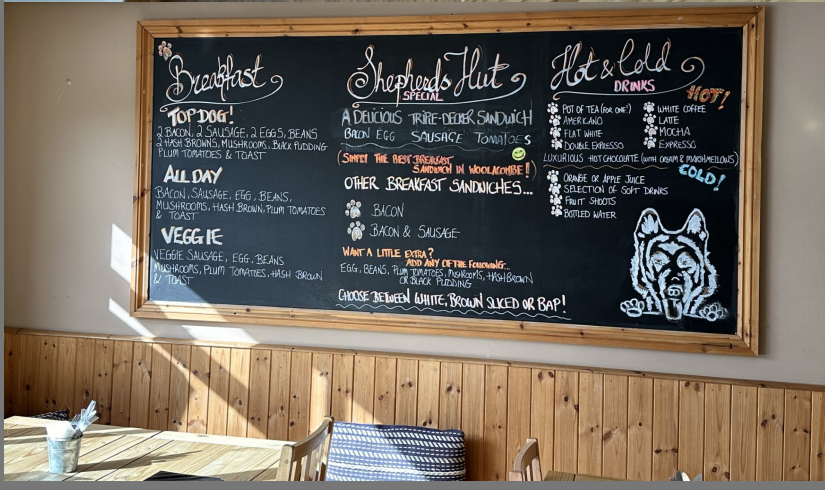 Breakfast
TOP DOG!
2 BACON, 2 SAUSAGE, 2 EGGS, BEANS
2 HASH BROWNS, MUSHROOMS, BLACK PUDDING
PLUM TOMATOES & TOAST
ALL DAY
BACON, SAUSAGE, EGG, BEANS,
MUSHROOMS, HASH BROWN, PLUM TOMATOES
& TOAST
VEGGIE
VEGGIE SAUSAGE, EGG, BEANS
MUSHROOMS, PLUM TOMATOES, HASH BROWN
& TOAST
Shepherds Hut
SPECIAL
A DELICIOUS TRIPE-DECKER SANDWICH
BACON EGG SAUSAGE TOMATOES
(SIMPLY THE BEST BREAKFAST
SANDWICH IN WOOLACOMBE!!)
OTHER BREAKFAST SANDWICHES...
BACON
BACON & SAUSAGE
WANT A LITTLE EXTRA?
ADD ANY OF THE FOLLOWING...
EGG, BEANS, PLUM TOMATOES, MUSHROOMS, HASH BROWN
OR BLACK PUDDING
CHOOSE BETWEEN WHITE, BROWN SLICED OR BAP!
Hot & Cold
DRINKS
HOT!
POT OF TEA (FOR ONE!)
AMERICANO
FLAT WHITE
DOUBLE EXPRESSO
WHITE COFFEE
LATTE
MOCHA
EXPRESSO
LUXURIOUS HOT CHOCOLATE (WITH CREAM & MARSHMELLOWS)
COLD!
ORANGE OR APPLE JUICE
SELECTION OF SOFT DRINKS
FRUIT SHOOTS
BOTTLED WATER